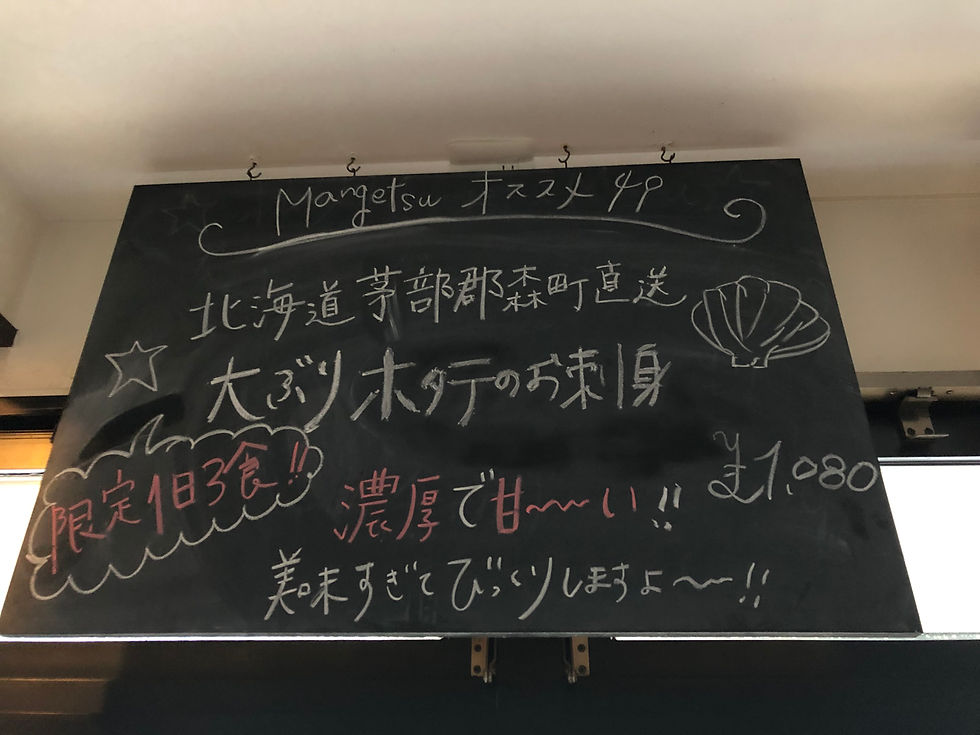 Mangetsu オススメ
北海道茅部郡森町直送
大ぶりホタテのお刺身
¥1,080
限定1日3食!!
濃厚で甘〜〜い!!
美味すぎてびっくりしますよ〜〜!!